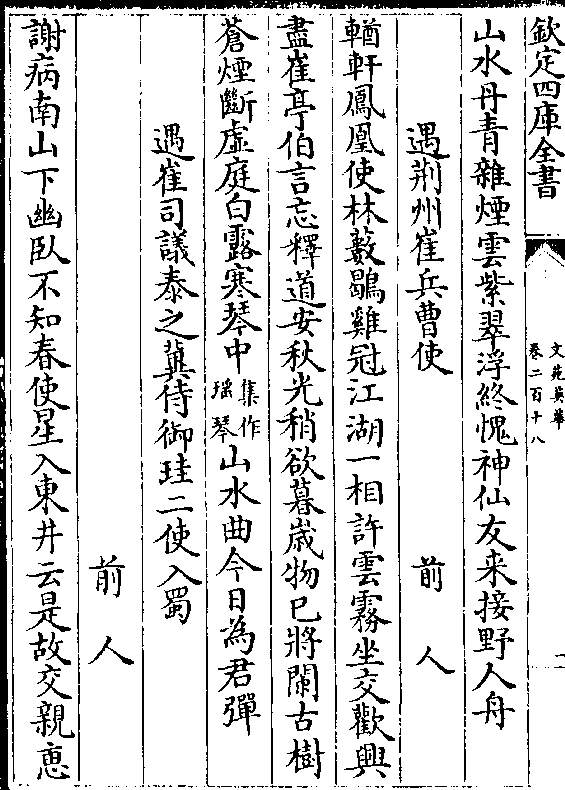 欽定四庫全書
文苑英華
卷二百十八
山水丹青雜煙雲紫翠浮終愧神仙友来接野人舟
遇荆州崔兵曹使
前人
輶軒鳳凰使林藪鶡雞冠江湖一相許雲霧坐交歡興
盡崔亭伯言忘釋道安秋光稍欲暮嵗物已將闌古樹
蒼煙斷虛庭白露寒琴中集作瑶琴山水曲今日為君彈
遇崔司議泰之冀侍御珪二使入蜀
前人
謝病南山下幽臥不知春使星入東井云是故交親惠